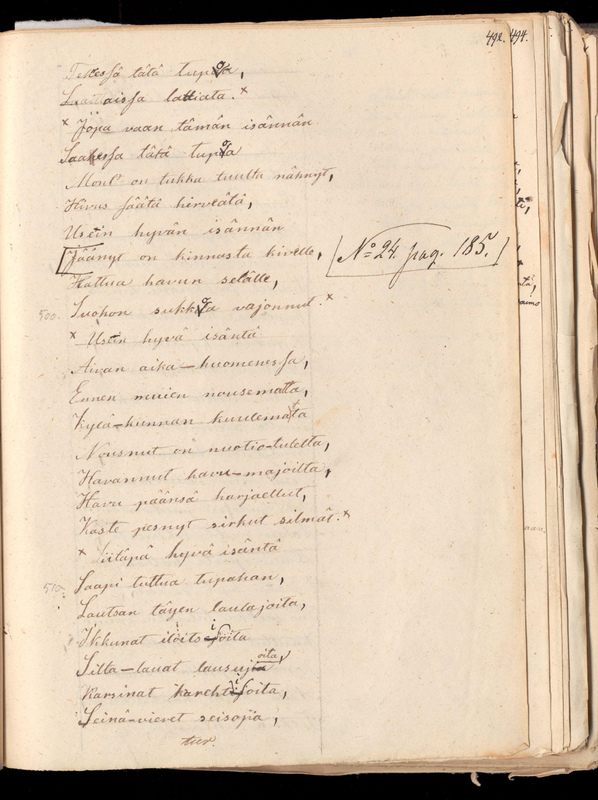 492. 494.
Tekessä tätä tupoa,
Laaiaissa lattiata. ×
× Jopa vaan tämän isännän
Saahessa tätä tupoa
Mont' on tukka tuulta nähnyt,
Hivus säätä hirveätä,
Usein hyvän isännän
[Jäänyt on kinnasta kivelle, [No 24. pag. 185.]
Hattua havun selälle,
500. Suohon sukkoa vajonnut. ×
× Usein hyvä isäntä
Aivan aika-huomenessa,
Ennen muien nousematta,
Kylä-kunnan kuulematta
Nousnut on nuotio-tulelta,
Havannut havu-majoilta,
Havu päänsä harjaellut,
Kaste pesnyt sirkut silmät. ×
× Siitäpä hyvä isäntä
510. Saapi tuttua tupahan,
Lautsan täyen laulajoita,
Ikkunat iloitsijoita
Silta-lauat lausujoita,
Karsinat karehtijoita,
Seinä-vieret seisojia,